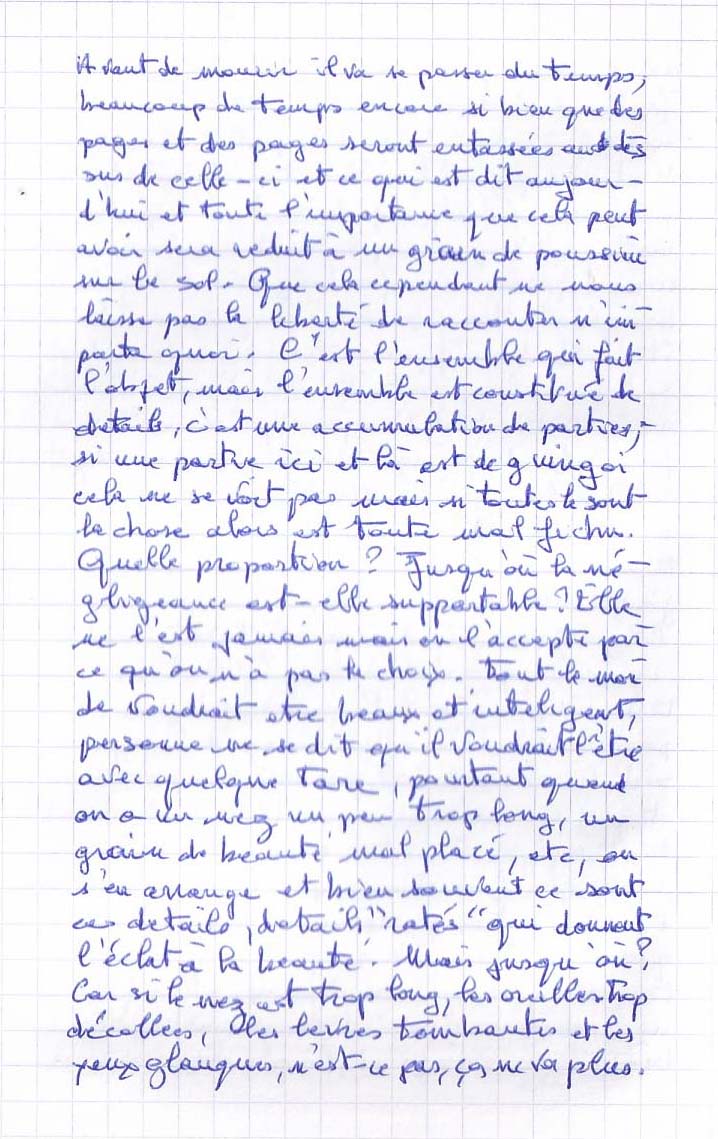 Avant de mourir il va se passer du temps,
beaucoup de temps encore si bien que des
pages et des pages seront entassées au des
sus de celle-ci et ce qui est dit aujour-
d'hui et toute l'importance que cela peut
avoir sera reduit à un grain de poussière
sur le sol. Que cela cependant ne nous
laisse pas la liberté de raccouter n'im-
porte quoi. C'est l'ensemble qui fait
l'objet, mais l'ensemble est constitué de
details, c'est une accumulation de parties,
si une partie ici et là est de guingoi
cela ne se voit pas mais si toutes le sont
la chose alors est toute mal fichu.
Quelle proportion ? Jusqu'où la né-
gligeance est-elle supportable ? Elle
ne l'est jamais mais on l'accepte par
ce qu'on n'a pas le choix. Tout le mon
de voudrait etre beaux et inteligent,
personne ne se dit qu'il voudrait l'être
avec quelque tare, pourtant quand
on a un nez un peu trop long, un
grain de beauté mal placé, etc, on
s'en arrange et bien souvent ce sont
ces details, details "ratés" qui donnent
l'éclat à la beauté. Mais jusqu'où ?
Car si le nez est trop long, les oreilles trop
décollées, les levres tombantes et les
yeux glauques, n'est-ce pas, ça ne va plus.